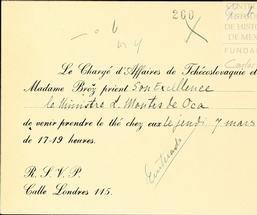 260
CENTRO
DE HISTORI
DE MEX
FUNDA
Carlos
Le Chargé d'Affaires de Tchécoslovaquie et
Madame Brož prient Son Excellence
le Ministre L Montes de Oca
de venir prendre le thé chez eux le jeudi 7 mars
de 17-19 heures.
Enterado
R. S. V. P.
Calle Londres 115.